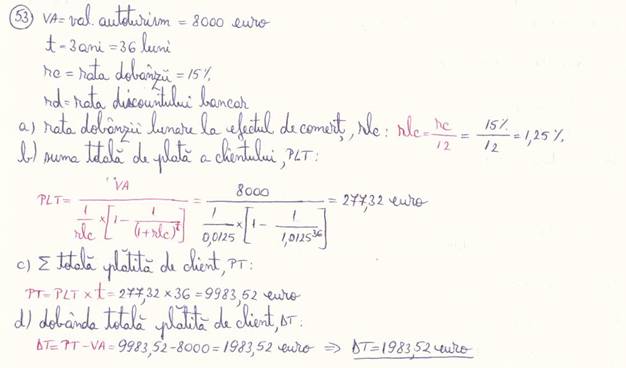 53 VA = val. autoturism = 8000 euro
t = 3 ani = 36 luni
rc = rata dobânzii = 15%
rd = rata discountului bancar
a) rata dobânzii lunare la efectul de comerț, rlc: rlc = rc/12 = 15%/12 = 1,25%.
b) suma totală de plată a clientului, PLT:
PLT = VA / (1/rlc × [1 - 1/(1+rlc)^t]) = 8000 / (1/0,0125 × [1 - 1/1,0125^36]) = 277,32 euro
c) Σ totală plătită de client, PT:
PT = PLT × t = 277,32 × 36 = 9983,52 euro
d) dobânda totală plătită de client, ΔT:
ΔT = PT - VA = 9983,52 - 8000 = 1983,52 euro ⇒ ΔT = 1983,52 euro